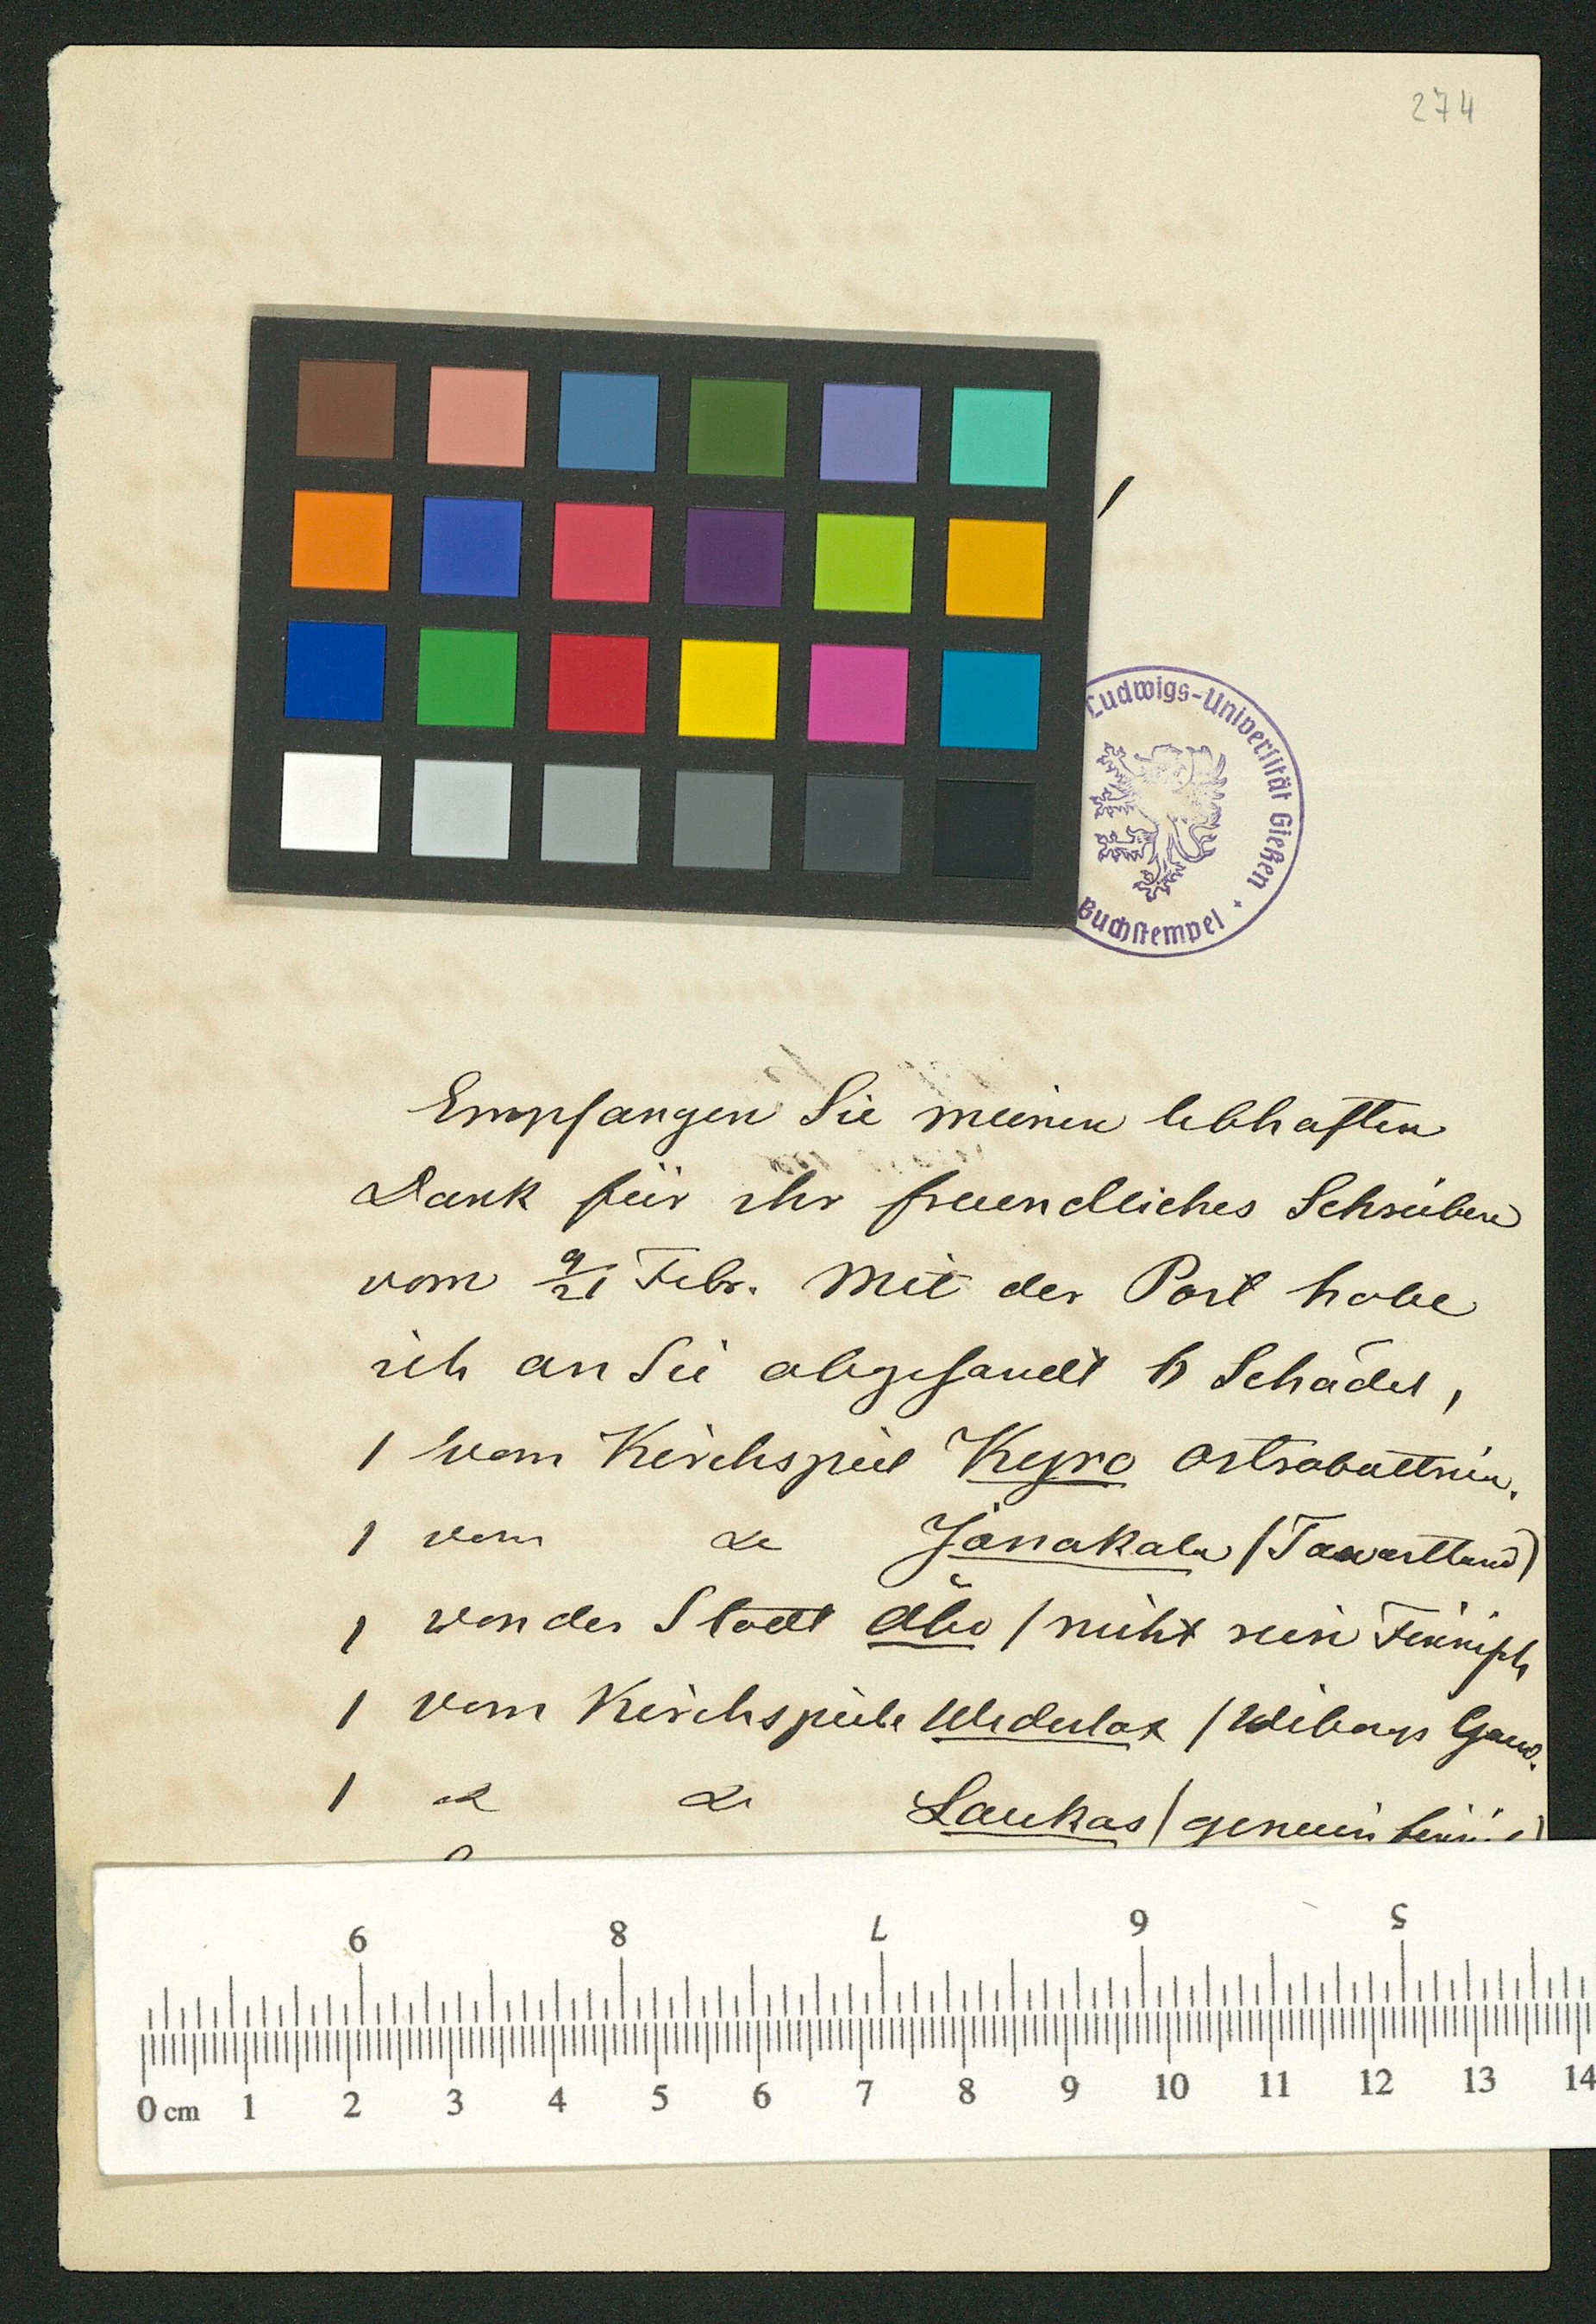 274
Ludwigs-Universität Gießen
Buchstempel
Empfangen Sie meinen lebhaften
Dank für ihr freundliches Schreiben
vom 9/21 Febr. Mit der Post habe
ich an Sie abgesandt 6 Schädel,
1 vom Kirchspiel Kyro Ostrobottnien.
1 vom do Janakala (Tawastland)
1 von der Stadt Åbo / nicht rein Finnisch
1 vom Kirchspiele Wederlax / Wiborgs Gouv.
1 do do Laukas /
9 8 7 6 5
0 cm 1 2 3 4 5 6 7 8 9 10 11 12 13 14